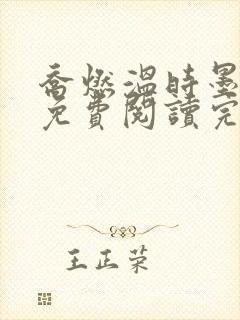 喬燃溫時墨
免費閱讀完
王正荣